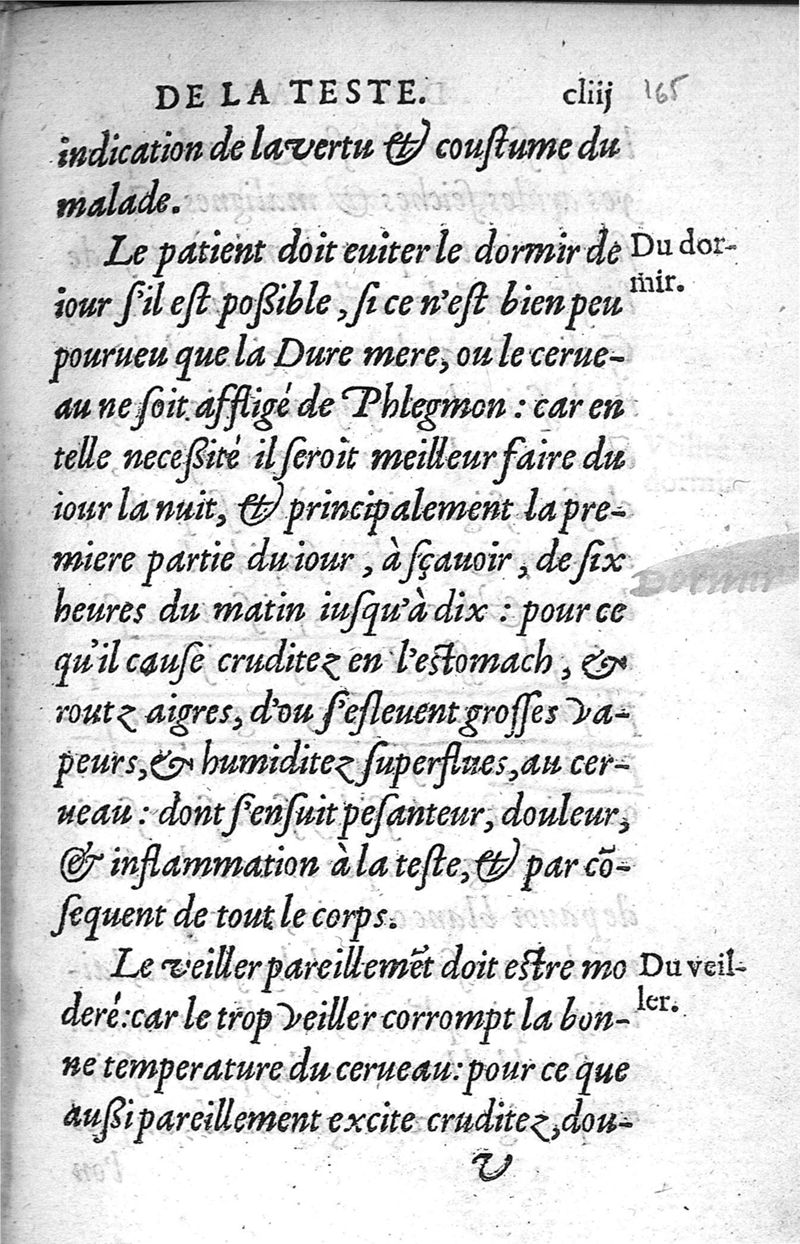 DE LA TESTE. cliij 165
indication de la vertu & couſtume du
malade.
Le patient doit euiter le dormir de
Du dor-
mir.
iour ſ'il eſt poßible, ſi ce n'eſt bien peu
pourueu que la Dure mere, ou le cerue-
au ne ſoit affligé de Phlegmon : car en
telle neceßité il ſeroit meilleur faire du
iour la nuit, & principalement la pre-
miere partie du iour, à ſçauoir, de ſix
Dormir
heures du matin iuſqu'à dix : pour ce
qu'il cauſe cruditez en l'eſtomach, &
routz aigres, d'ou ſ'eſleuent groſſes va-
peurs, & humiditez ſuperflues, au cer-
ueau : dont ſ'enſuit peſanteur, douleur,
& inflammation à la teſte, & par cõ-
ſequent de tout le corps.
Le veiller pareillemẽt doit eſtre mo
Du veil-
ler.
deré: car le trop veiller corrompt la bon-
ne temperature du cerueau: pour ce que
außi pareillement excite cruditez, dou-
V